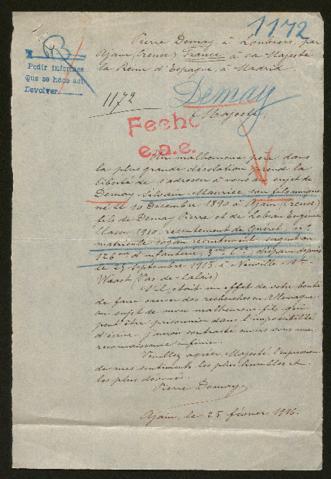 1172
Pierre Demay à par
Ajain (Creuse) France à sa Majesté
la Reine d'Espagne à Madrid
Pedir informes
Que se hace asi
Devolver
1172
Demay
Majesté
Fecho
e.n.e.
Un malheureux père dans
la plus grande désolation prend la
liberté de s'adresser à vous au sujet de
Demay Silvain Maurice son fils unique
né le 10 Décembre 1890 à Ajain (Creuse)
fils de Demay Pierre et de Eugénie
Classe 1910, recrutement de Guéret, nº
matricule recrutement, sergent au
126me d'infanterie, 3e Cie disparu depuis
le 25 Septembre 1915 à Neuville St
Waast (Pas-de-Calais)
S'il était un effet de votre bonté
de faire exercer des recherches en Allemagne
au sujet de mon malheureux fils qui
peut être prisonnier dans l'impossibilité
d'écrire, j'aurais contracté envers vous une
reconnaissance infinie.
Veuillez agréer, Majesté, l'expression
de mes sentiments les plus humbles et
les plus dévoués.
Pierre Demay
Ajain, le 25 février 1916.